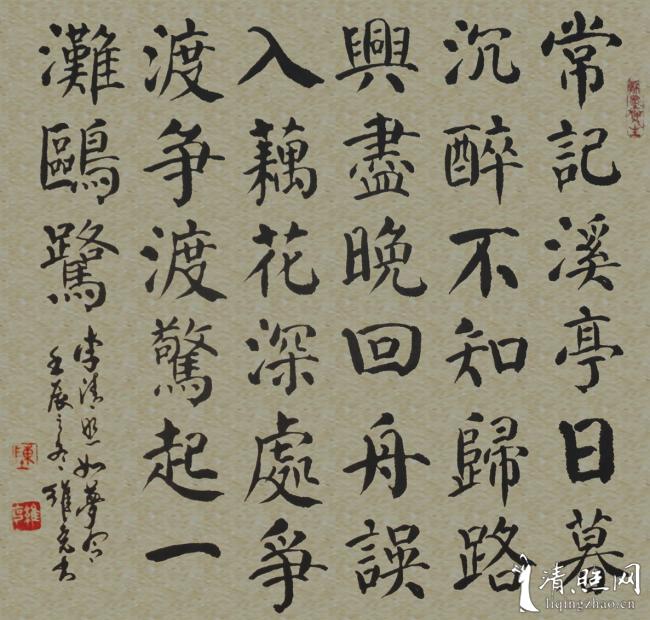 常記溪亭日暮
沉醉不知歸路
興盡晚回舟誤
入藕花深處爭
渡争渡驚起一
灘鷗鷺
李清照如夢令
壬辰之冬雄亮书
清照网
liqingzhao.cn